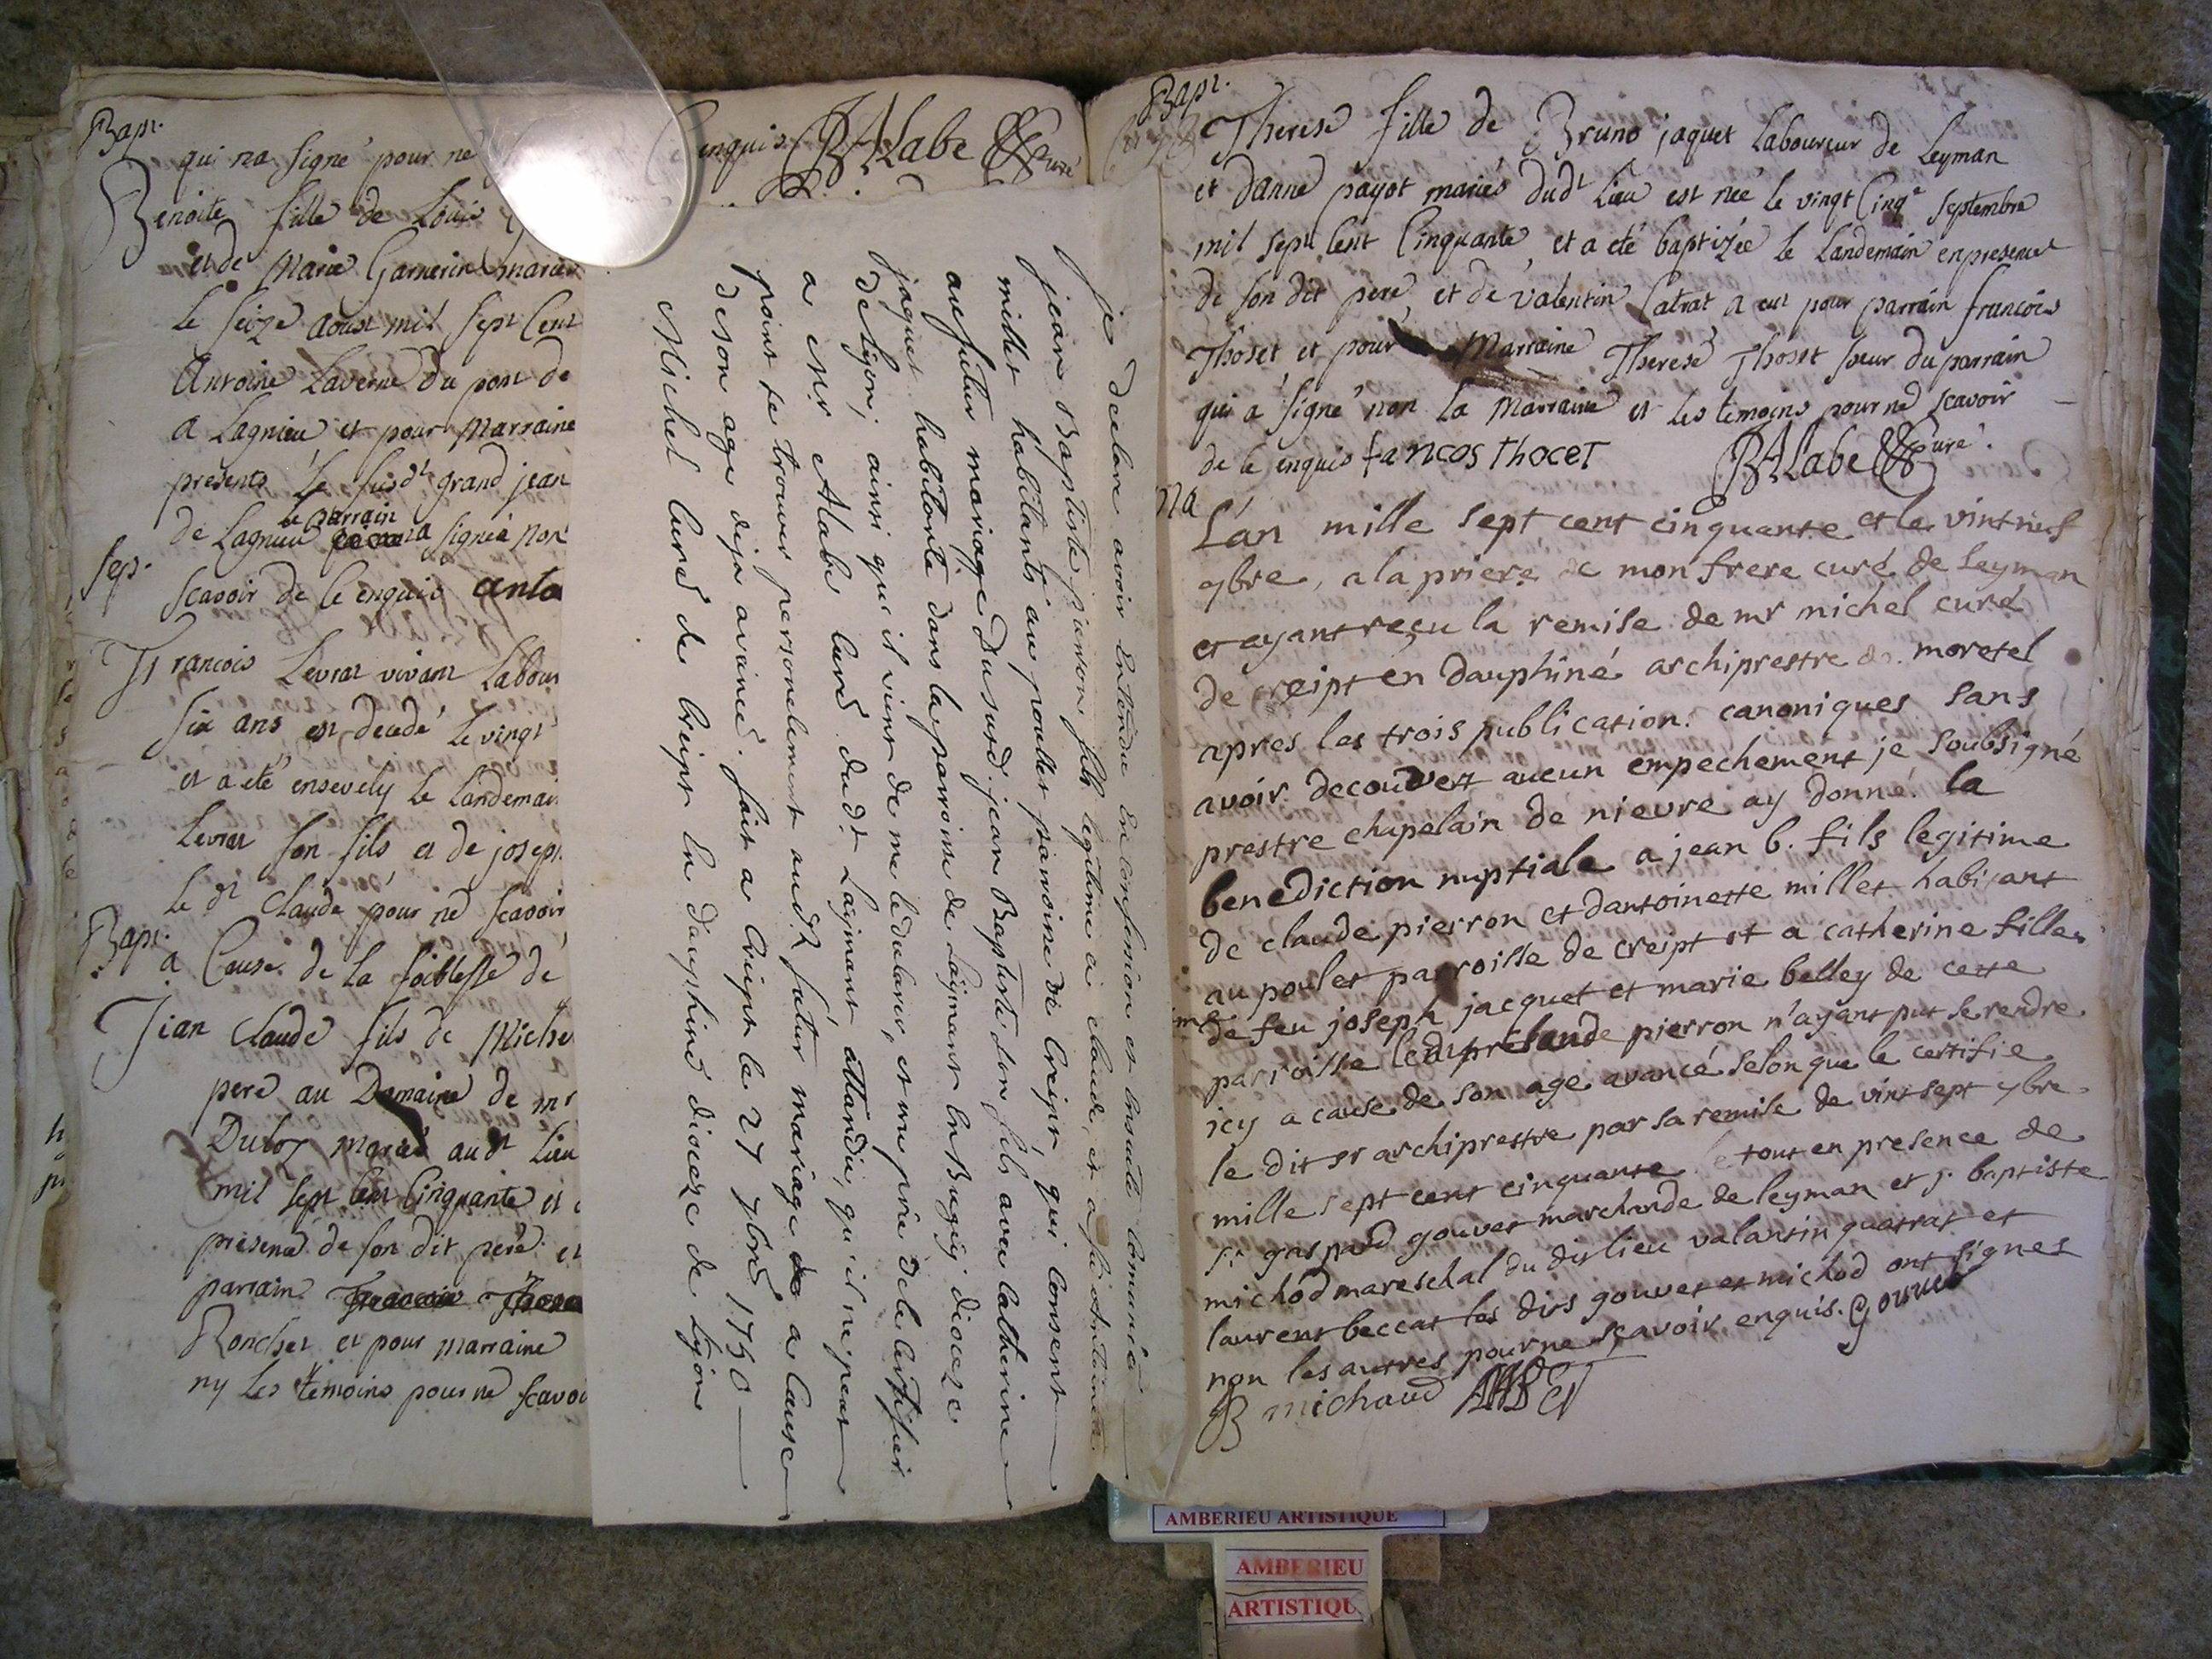 Bapt.
qui na signé pour ne
enquis BALabe curé
Benoite fille de Louis
et de Marie Garnerin mariés
le seize aoust mil sept Cent
Antoine Laverne du pont de
a Lagnieu et pour Marraine
presents le susdt grand jean
le parrain
de Lagnieu a signé non
Sep.
scavoir de le enquis anto
Francois Levrat vivant Labour
six ans est decedé le vingt
et a eté ensevely le Landemain
Levrat son fils et de joseph
le dt Claude pour ne scavoir
Bapt.
a Cause de la foiblesse de
Jean Claude fils de Miche
pere au Domaine de mr
Duboz mariés audt Lieu
mil sept Cent Cinquante et
presence de son dit pere et
parrain Francois Thoset
Ronchet et pour marraine
ny les temoins pour ne scavoi
je declare avoir Entendu En confession et Ensuite Comunié
jean Baptiste pieron fils legitime a claude, et a feu Antoinette
millet habitants au poullet parroisse de Creipt, qui Consent
au futur mariage du susd. jean Baptiste son fils avec Catherine
jaquet habitante dans la parroisse de Laymant En Bugey dioceze
de Lyon, ainsi qu'il vient de me le declarer, et me prie de le Certifier
a Mr Alabe Curé dudt Laymant attandu, qu'il ne peut
point se trouver personelement audt futur mariage a Cause
de son age deja avancé. fait a Creipt le 27 7bre 1750
Michel Curé de Creipt En dauphiné dioceze de Lyon
Bapt.
Therese fille de Bruno jaquet Laboureur de Leyman
et danne payot mariés dudt Lieu est née le vingt Cinqe septembre
mil sept Cent Cinquante, et a eté baptizée le Landemain en presence
de son dit pere et de valentin Catrat a eut pour parrain francois
Thoset et pour Marraine Therese Thoset soeur du parrain
qui a signé non la Marraine et les temoins pour ne scavoir
de le enquis fancos Thocet BALabe Curé.
L'an mille sept cent cinquante et le vint neuf
7bre, a la priere de mon frere curé de Leyman
et ayant reçu la remise de mr michel curé
de creipt en dauphiné archiprestre de moretel
apres les trois publication. canoniques sans
avoir decouvert aucun empechement je soubsigné
prestre chapelain de nievre ay donné la
benediction nuptiale a jean b. fils legitime
de claude pierron et dantoinette millet habitant
au poulet parroisse de creipt et a catherine fille
de feu joseph jacquet et marie belley de cette
parroisse ledit claude pierron n'ayant put se rendre
icy a cause de son age avancé selon que le certifie
le dit sr archiprestre par sa remise de vint sept 7bre
mille sept cent cinquante le tout en presence de
sr gaspard gouvet marchand de leyman et j. baptiste
michod mareschal du dit lieu valantin quatrat et
laurent beccat les dits gouvet et michod ont signes
non les autres pour ne scavoir enquis. Gouvet
B michaud
AMBERIEU ARTISTIQUE
AMBERIEU
ARTISTIQU